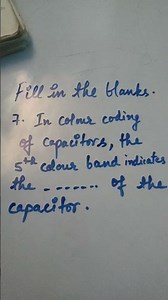 Fill in the blanks.
7. In colour coding
of capacitors, the
5th colour band indicates
the ------- of the
capacitor.